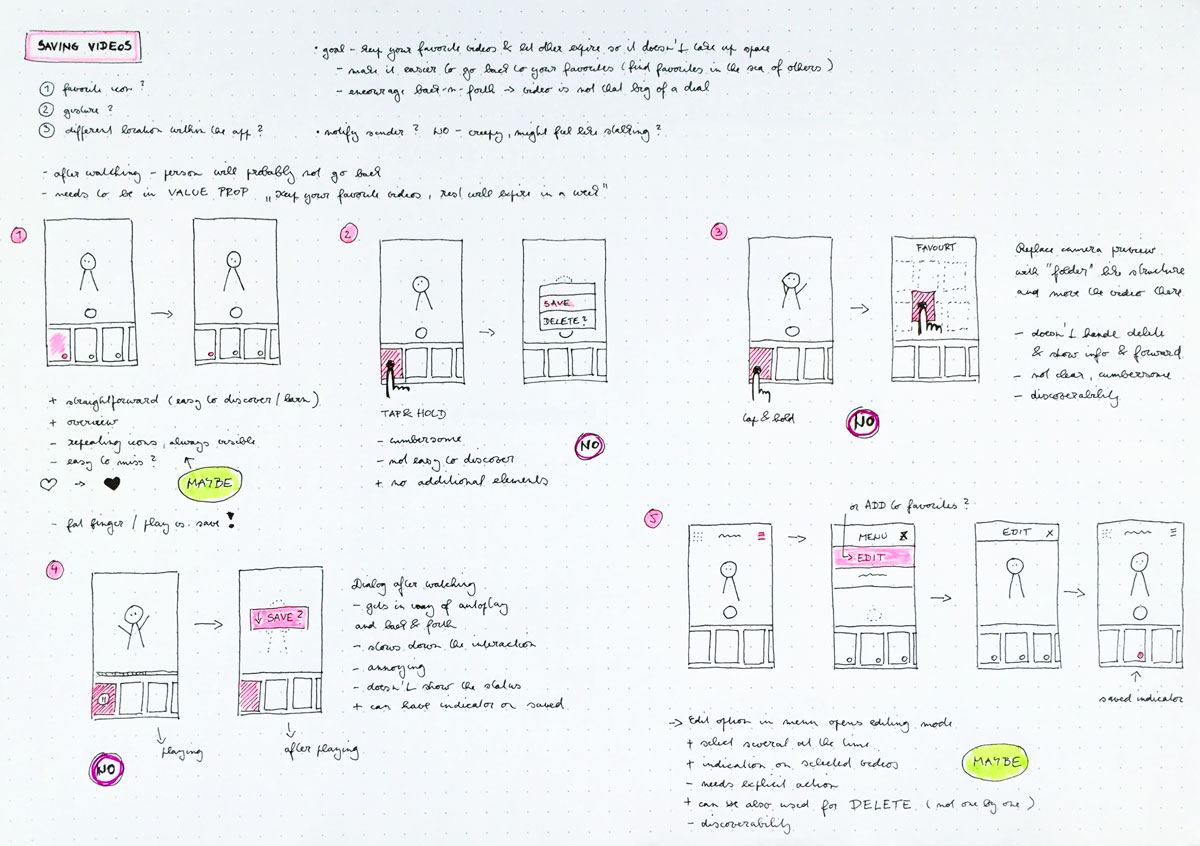 SAVING VIDEOS
• goal – keep your favorite videos & let other expire so it doesn't take up space
– make it easier to go back to your favorites (find favorites in the sea of others)
– encourage back-n-forth → video is not that big of a deal
① favorite icon?
② gesture?
③ different location within the app?
• notify sender? NO – creepy, might feel like stalking?
– after watching – person will probably not go back
– needs to be in VALUE PROP „keep your favorite videos, rest will expire in a week"
1
+ straightforward (easy to discover / learn)
+ overview
– repeating icons, always visible
– easy to miss?
♡ → ♥
MAYBE
– fat finger / play vs. save!
2
SAVE
DELETE?
TAP & HOLD
– cumbersome
– not easy to discover
+ no additional elements
NO
3
FAVOURT
tap & hold
NO
Replace camera preview
with "folder" like structure
and move the video there
– doesn't handle delete
& show info & forward
– not clear, cumbersome
– discoverability
4
↓ SAVE?
playing
after playing
NO
Dialog after watching
– gets in way of autoplay
and back & forth
– slows down the interaction
– annoying
– doesn't show the status
+ can have indicator on saved
5
or ADD to favorites?
MENU X
EDIT
EDIT X
saved indicator
→ Edit option in menu opens editing mode
+ select several at the time
+ indication on selected videos
– needs explicit action
+ can we also used for DELETE (not one by one)
– discoverability
MAYBE